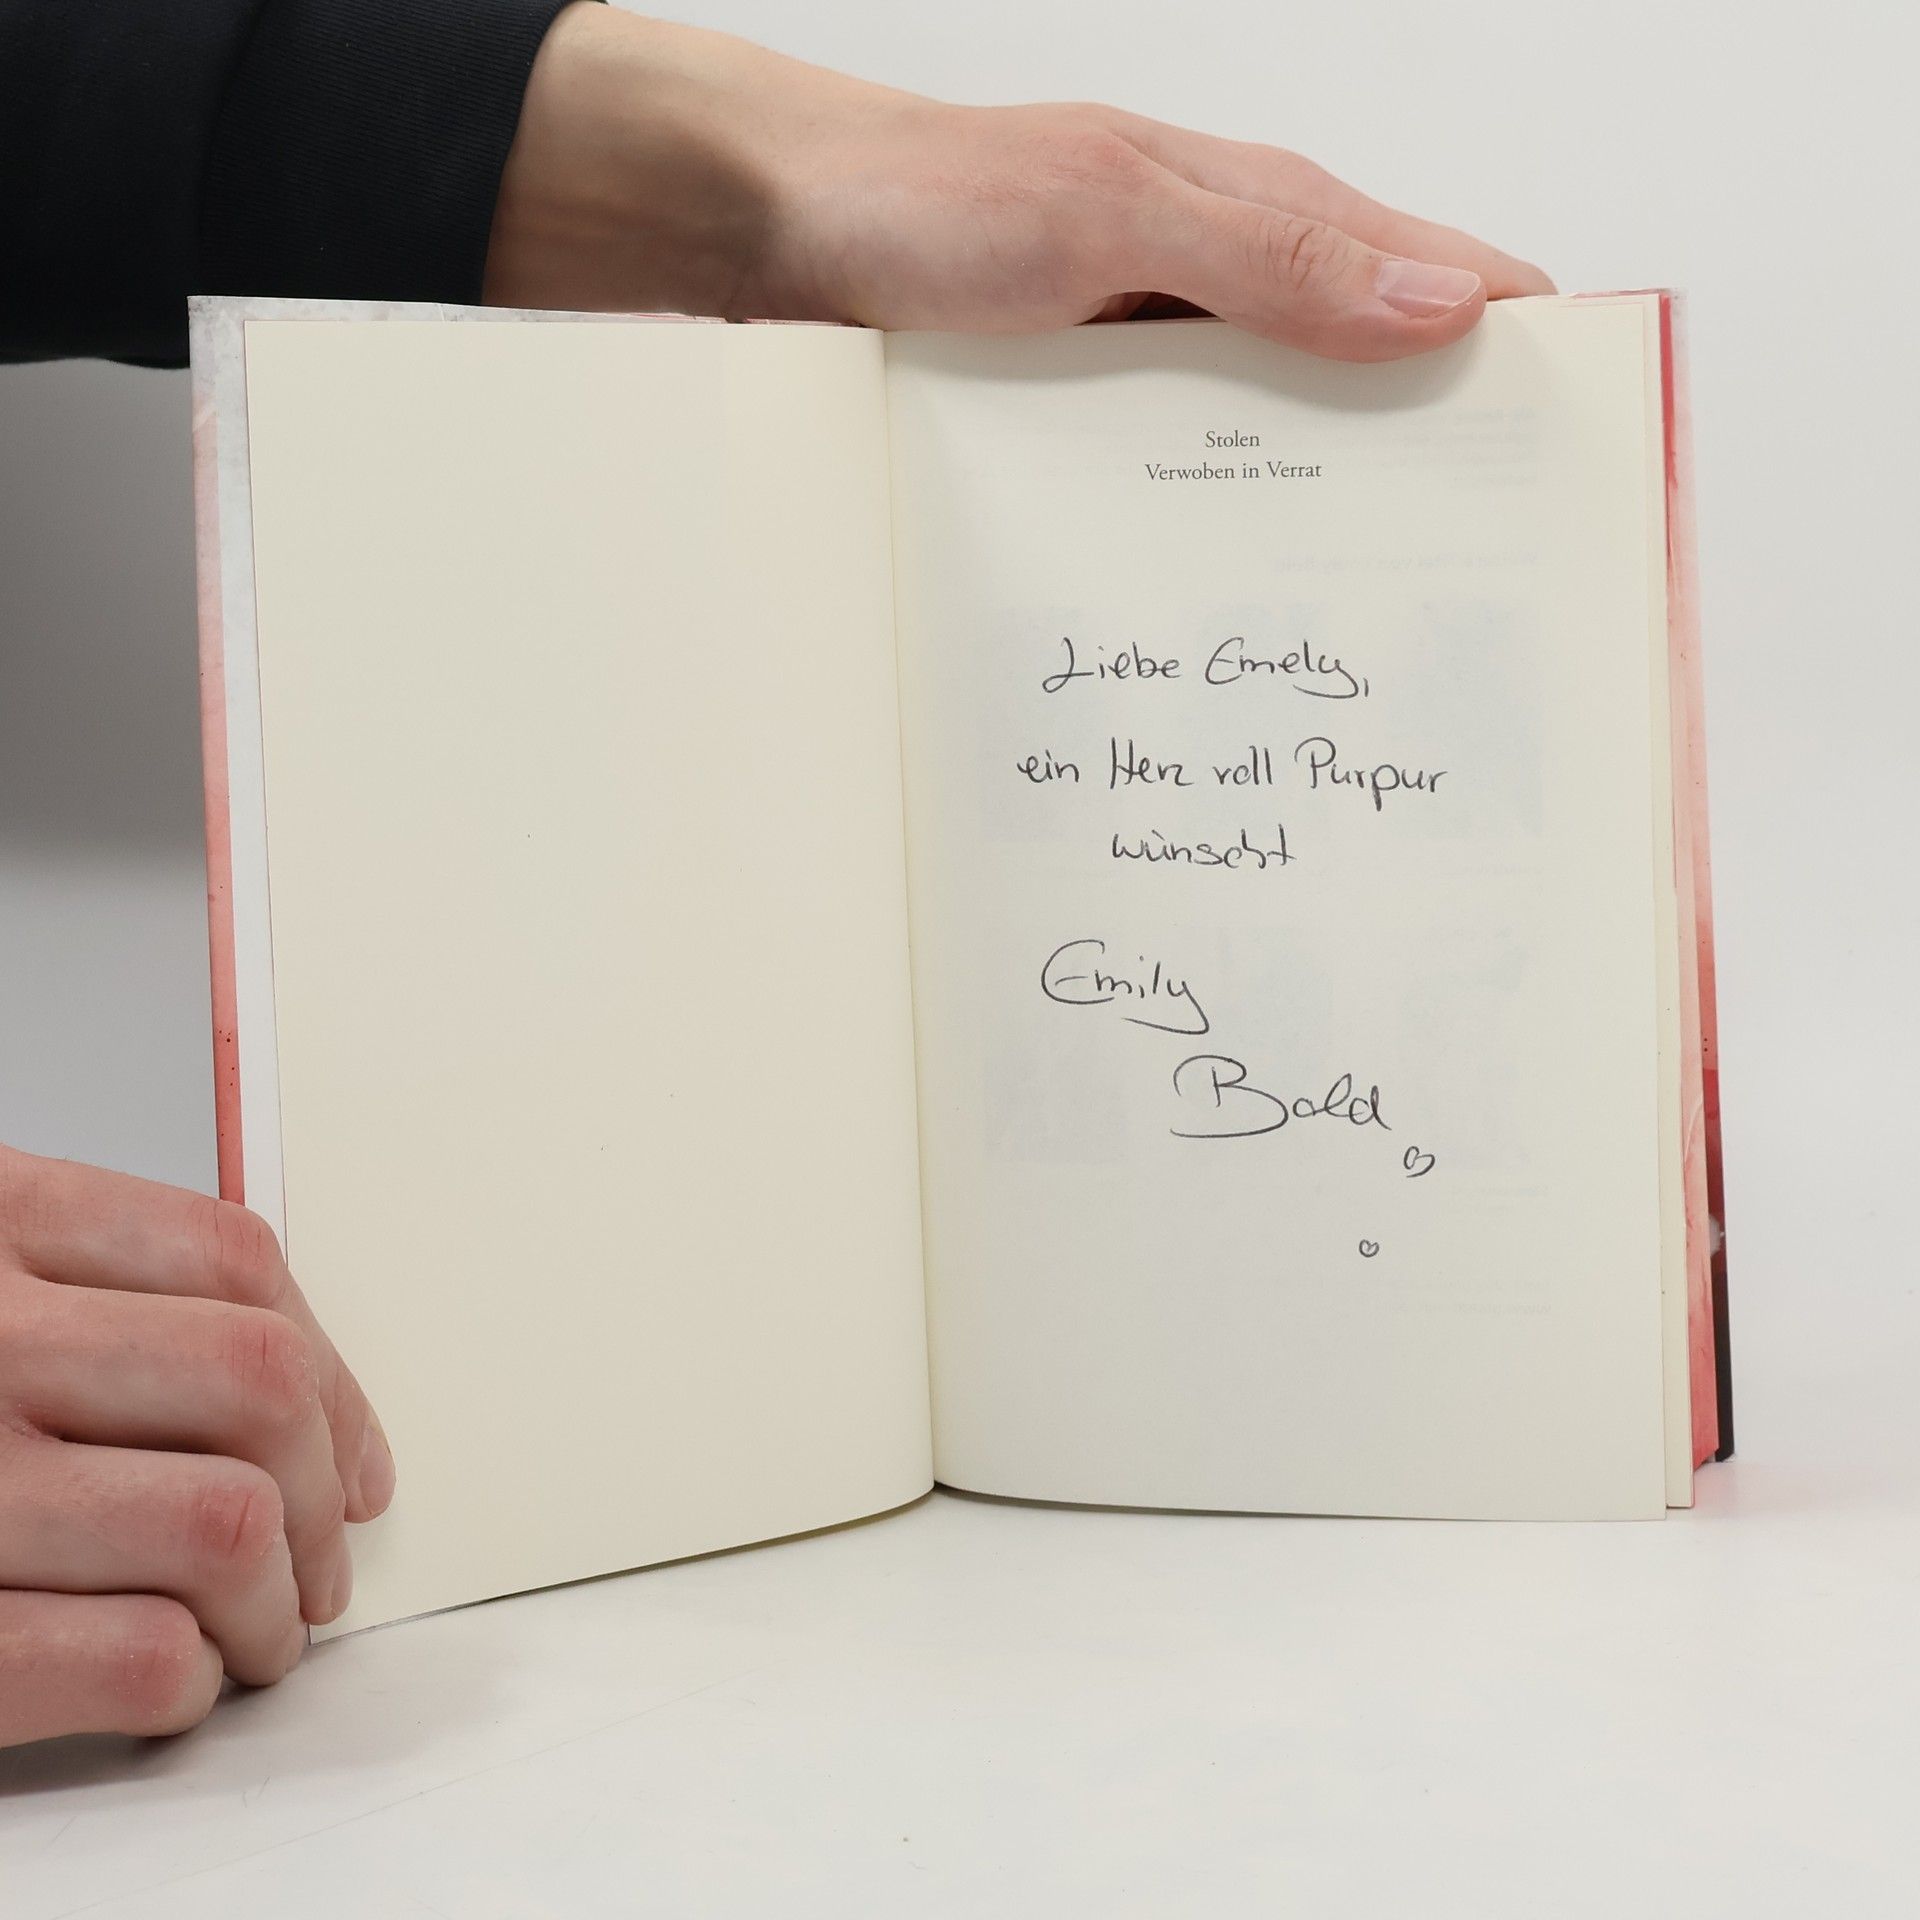 Stolen
Verwoben in Verrat
Liebe Emely,
ein Herz voll Purpur
wünscht
Emily
Bold